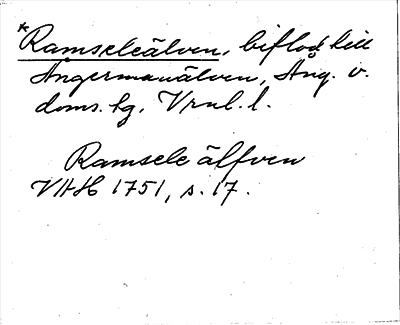 *Ramseleälven, biflod till
Ångermanälven, Ång. v.
doms. lg. Vrnl. l.
Ramsele älfven
VAH 1751, s. 17.